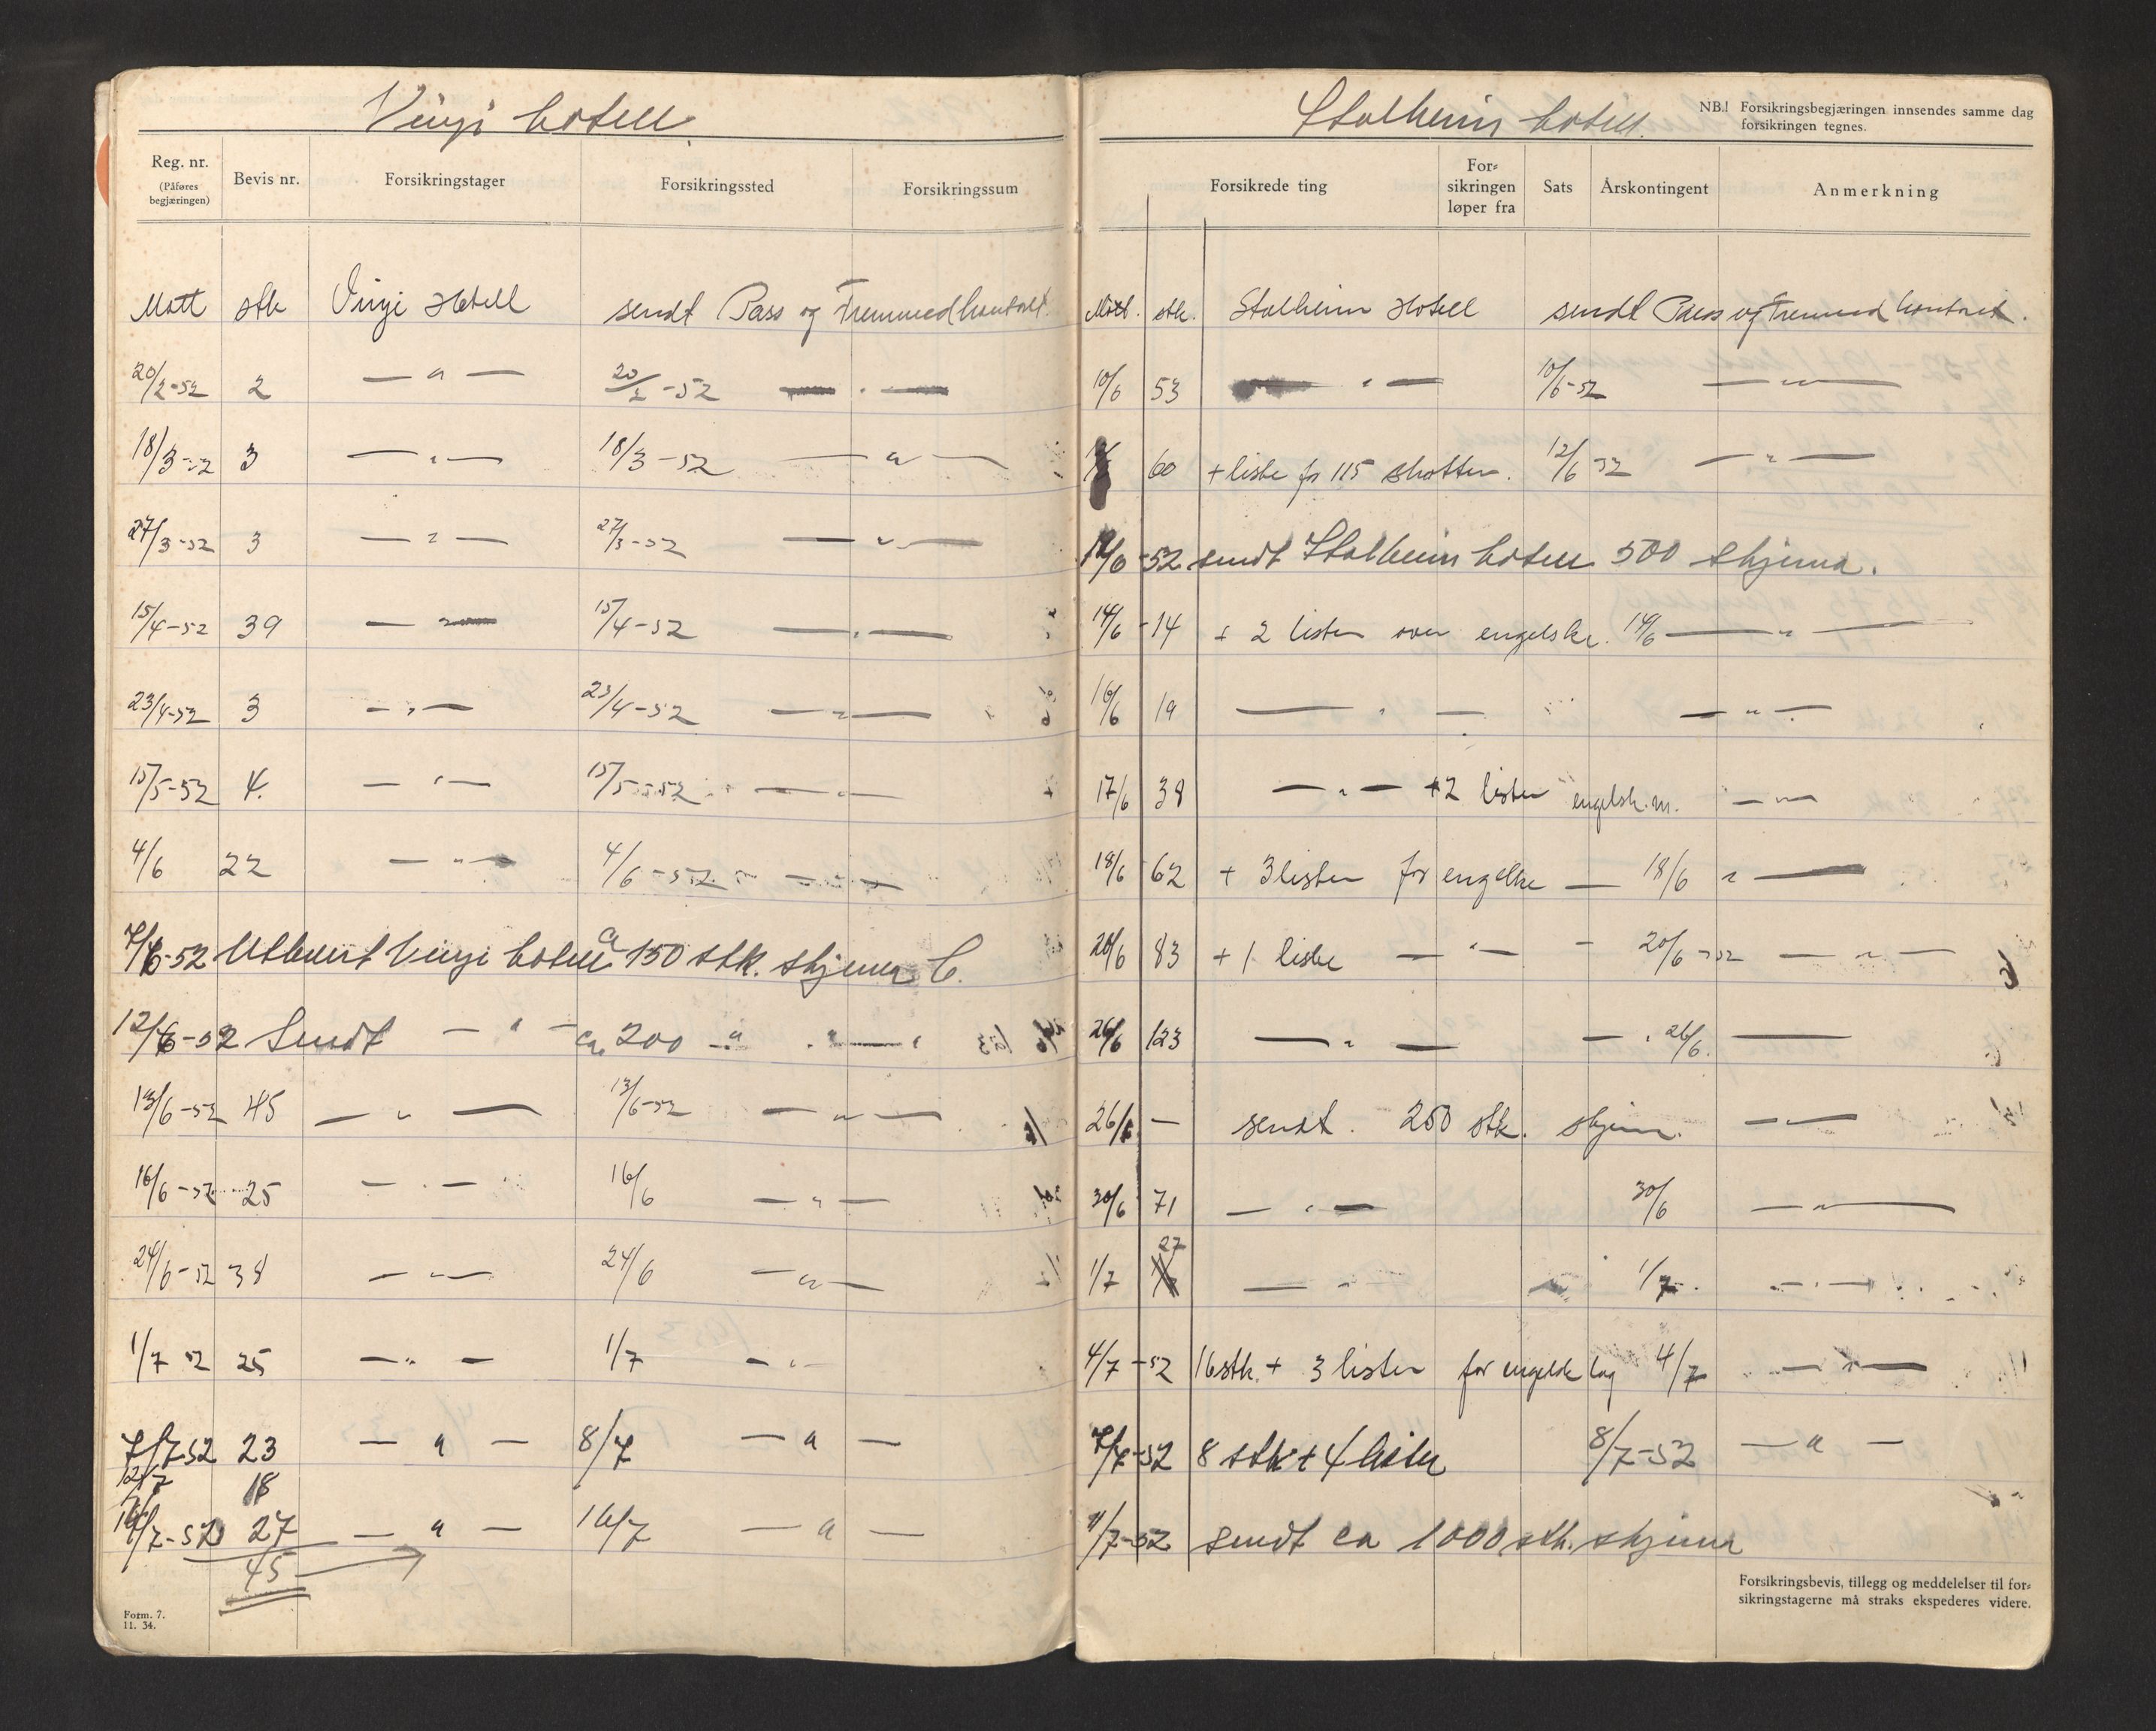 Vinje hotell.
Reg. nr. (Påføres begjæringen) Bevis nr. Forsikringstager Forsikringssted Forsikringssum
Mott stk Vinje Hotell sendt Pass og Fremmedkontoret.
20/2-52 2 — " — 20/2-52 — " —
18/3-52 3 — " — 18/3-52 — " —
27/3-52 3 — " — 27/3-52 — " —
15/4-52 39 — " — 15/4-52 — " —
23/4-52 3 — " — 23/4-52 — " —
15/5-52 4. — " — 15/5-52 — " —
4/6 22 — " — 4/6-52 — " —
7/6-52 Utlevert Vinje hotell a 150 stk. skjema C.
12/6-52 Sendt — " — ca. 200 — " — " —
13/6-52 45 — " — 13/6-52 — " —
16/6-52 25 — " — 16/6 — " —
24/6-52 38 — " — 24/6 — " —
1/7 52 25 — " — 1/7 — " —
7/7-52 23 — " — 8/7 — " —
12/7 18
16/7-52 27 — " — 16/7 — " —
45
Form. 7.
11. 34.
Stalheim hotell.
NB! Forsikringsbegjæringen innsendes samme dag
forsikringen tegnes.
Forsikrede ting For-sikringen løper fra Sats Årskontingent Anmerkning
Mott. stk. Stalheim Hotell sendt Pass og Fremmed kontoret.
10/6 53 — " — 10/6-52 — " —
60 + liste for 115 skotter. 12/6 52 — " —
12/6-52 sendt Stalheim hotell 500 skjema.
14/6 -14 + 2 lister over engelske. 14/6 — " —
16/6 19 — " — — " —
17/6 38 — " — +2 lister engelsk.m. — " —
18/6 62 + 3 lister for engelske — 18/6 " —
20/6 83 + 1 liste — " — - 20/6-52 — " —
26/6 123 — " — — " 26/6. —
26/6 — sendt. 250 stk. skjem. — " —
30/6 71 — " — 30/6 — " —
1/7 27 — " — 1/7. — " —
4/7-52 16 stk. + 3 lister for engelsk lag 4/7 — " —
7/7-52 8 stk + 4 lister 8/7-52 — " —
11/7-52 sendt ca 1000 stk. skjema
Forsikringsbevis, tillegg og meddelelser til for-
sikringstagerne må straks ekspederes videre.